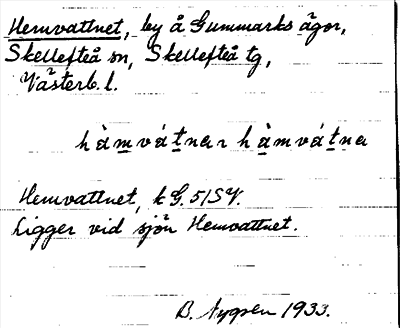 Hemvattnet, by å Gummarks ägor,
Skellefteå sn, Skellefteå tg,
Västerb. l.
hàmvátna ~ hàmvátna
Hemvattnet, k G. 51 SV.
Ligger vid sjön Hemvattnet.
B. 1933.